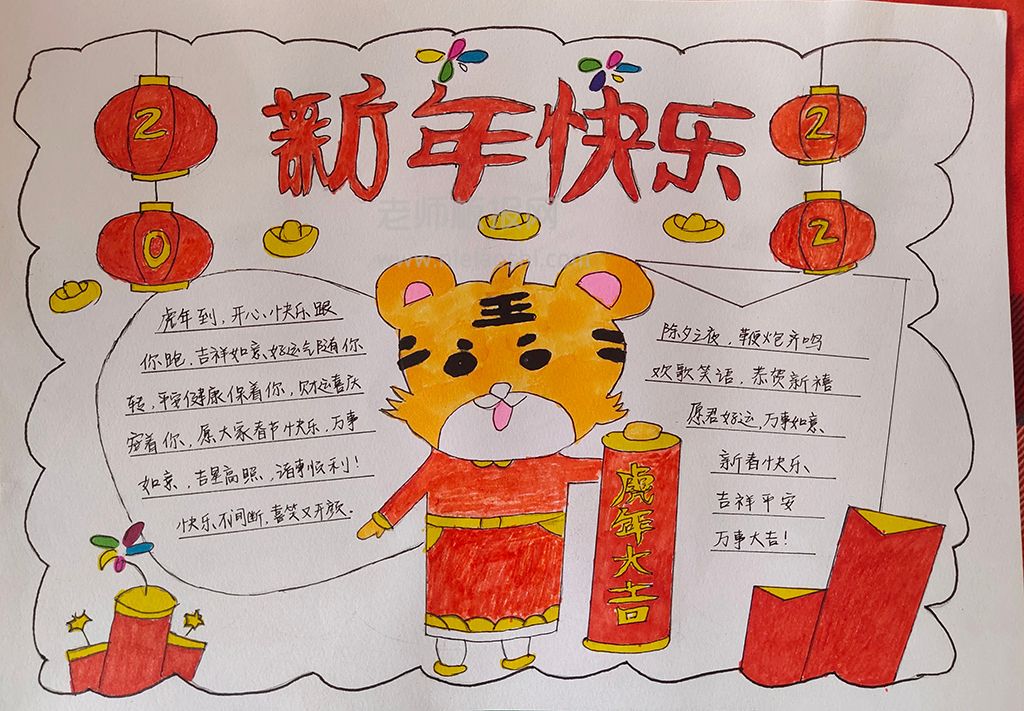 新年快乐
2
0
2
2
老师板报网
虎年到，开心、快乐跟
你跑，吉祥如意、好运气随你
转，平安健康保着你，财运喜庆
宠着你，愿大家春节快乐，万事
如意，吉星高照，诸事恒利！
快乐、不间断，喜笑又开颜。
王
虎年大吉
除夕之夜，鞭炮齐鸣
欢歌笑语，恭贺新禧
愿君好运，万事如意、
新春快乐、
吉祥平安
万事大吉！